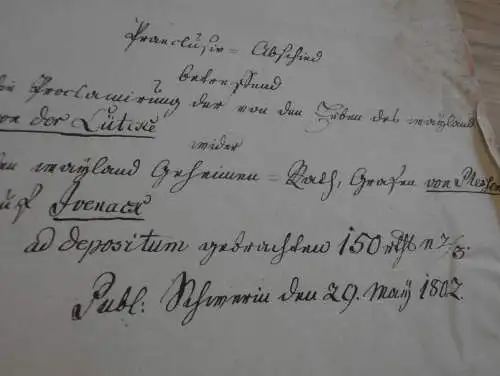 Praeclusiv = Abschied
betreffend
die Proclamirung der von den Erben des wayland
von der Lütcke
wider
den wayland Geheimen = Rath, Grafen von Plessen
auf Ivenack
ad depositum gebrachten 150 rthl n 2/3.
Publ: Schwerin den 29. May 1802.